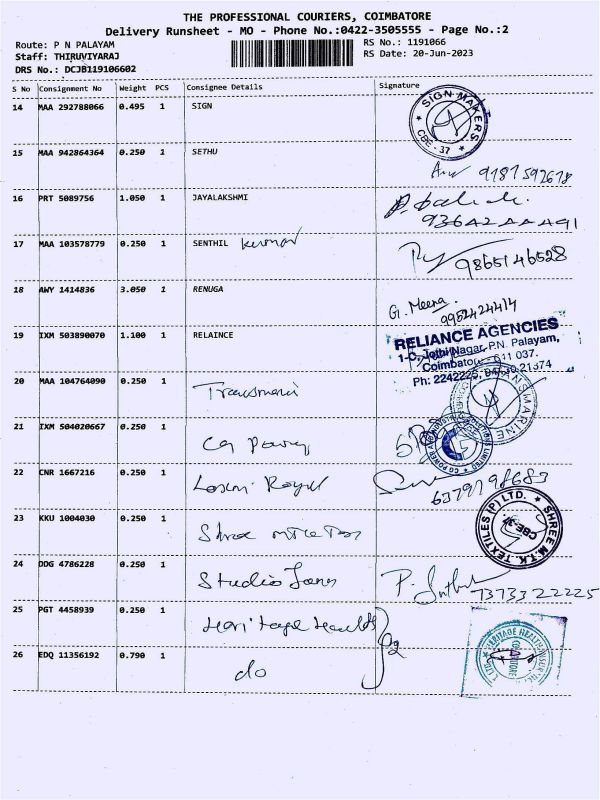 THE PROFESSIONAL COURIERS, COIMBATORE
Delivery Runsheet - MO - Phone No.:0422-3505555 - Page No.:2
Route: P N PALAYAM
RS No.: 1191066
Staff: THIRUVIYARAJ
RS Date: 20-Jun-2023
DRS No.: DCJB119106602
S No Consignment No Weight PCS Consignee Details Signature
14 MAA 292788066 0.495 1 SIGN
SIGN MAKERS
CBE - 37
15 MAA 942864364 0.250 1 SETHU
16 PRT 5089756 1.050 1 JAYALAKSHMI
17 MAA 103578779 0.250 1 SENTHIL kumar
9865146528
18 AWY 1414836 3.050 1 RENUGA
G. Meena.
9952424414
19 IXM 503890070 1.100 1 RELAINCE
RELIANCE AGENCIES
1-C, Jothi Nagar, P.N. Palayam,
Coimbatore - 641 037.
Ph: 2242225,
20 MAA 104764090 0.250 1 Transmarine
TRANSMARINE
21 IXM 504020667 0.250 1 CG Power
22 CNR 1667216 0.250 1
23 KKU 1004030 0.250 1
SHREE M.T.K. TEXTILES (P) LTD.
CBE-37.
24 DDG 4786228 0.250 1 Studio
7373322225
25 PGT 4458939 0.250 1 Heritage Health
26 EDQ 11356192 0.790 1 do
HERITAGE HEALTH